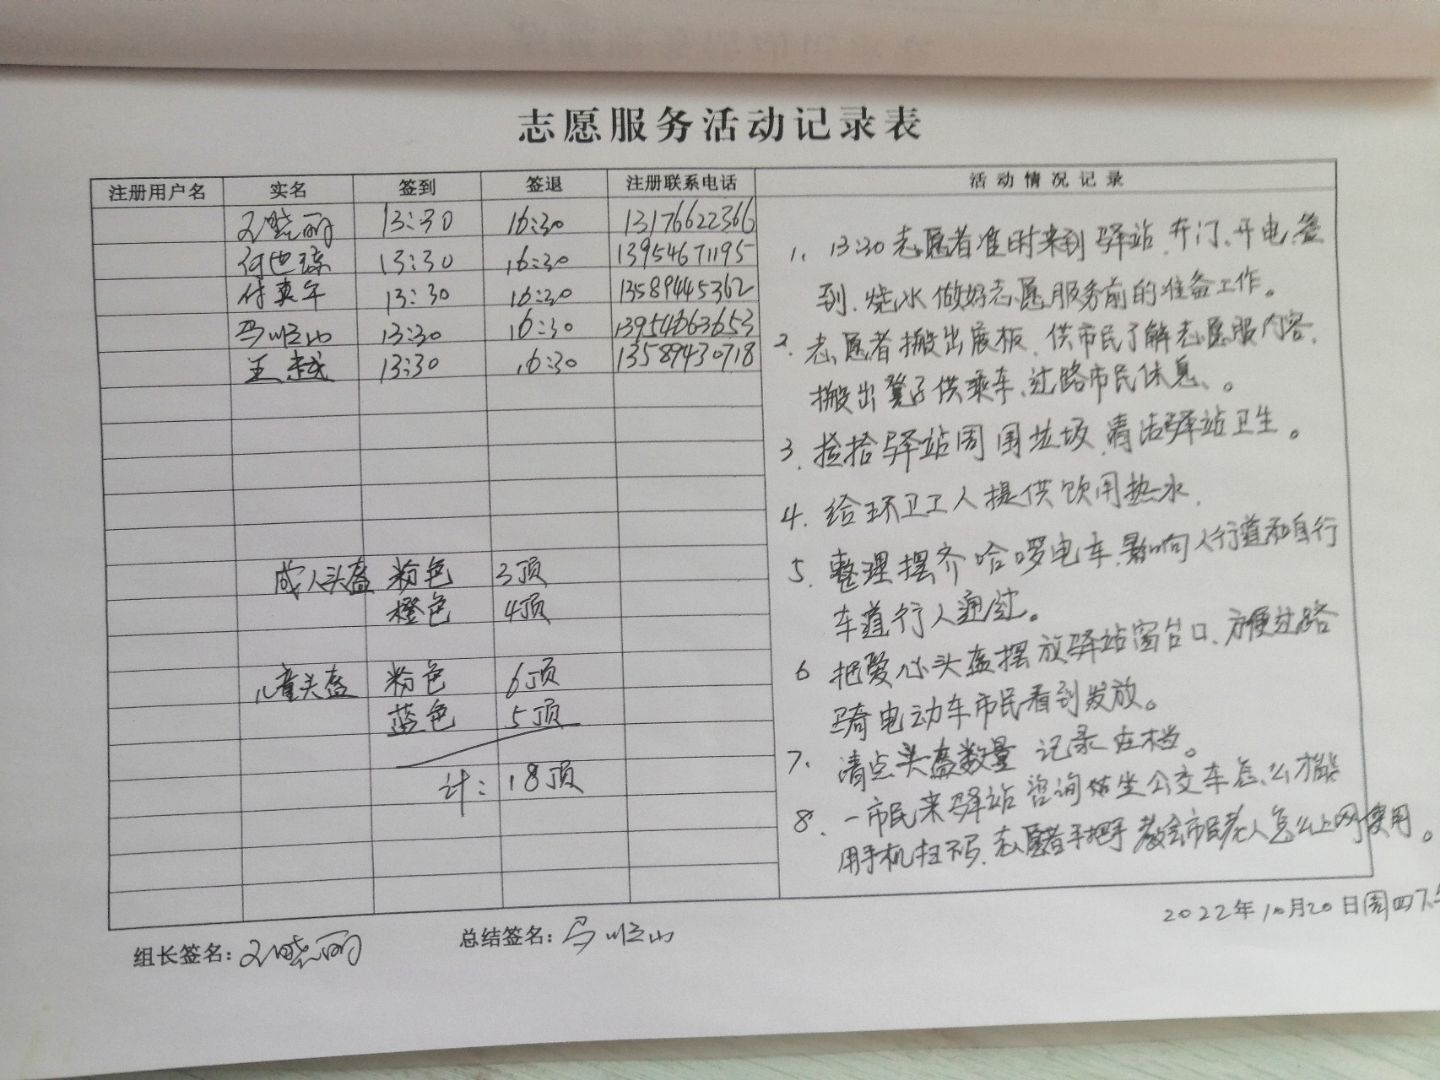 志愿服务活动记录表
注册用户名 实名 签到 签退 注册联系电话 活动情况记录
晓丽 13:30 16:30 13176622366
何世琼 13:30 16:30 13954671195
付真年 13:30 16:30 13589445362
马顺山 13:30 16:30 13954663653
王越 13:30 16:30 13589430718
成人头盔 粉色 3顶
橙色 4顶
儿童头盔 粉色 6顶
蓝色 5顶
计: 18顶
1. 13:30志愿者准时来到驿站,开门、开电、签
到、烧水做好志愿服务前的准备工作。
2. 志愿者搬出展板,供市民了解志愿服内容,
搬出凳子供乘车、过路市民休息、。
3. 捡拾驿站周围垃圾,清洁驿站卫生。
4. 给环卫工人提供饮用热水,
5. 整理摆齐哈啰电车,影响人行道和自行
车道行人通过。
6 把爱心头盔摆放驿站窗台口、方便过路
骑电动车市民看到发放。
7. 清点头盔数量 记录在档。
8. 一市民来驿站咨询 坐公交车怎么才能
用手机扫码,志愿者手把手教会市民老人怎么上网使用。
2022年10月20日周四下午
组长签名: 晓丽 总结签名: 马顺山